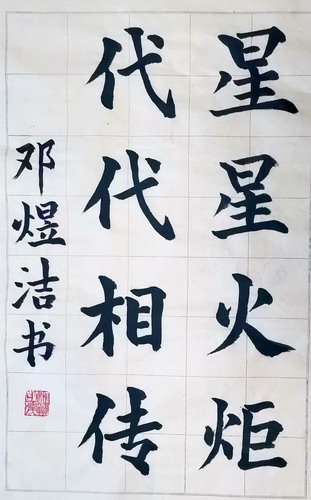 星星火炬
代代相传
邓煜洁书